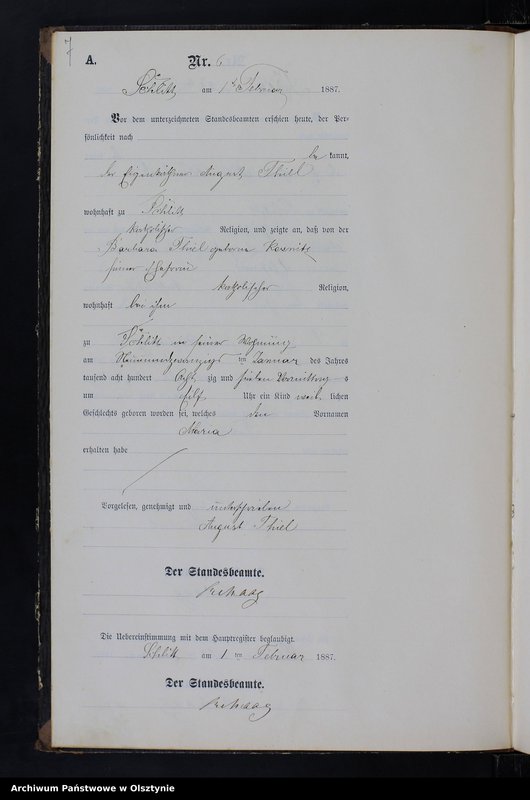 7
A.
Nr. 6
Schlitt am 1ten Februar 1887.
Vor dem unterzeichneten Standesbeamten erschien heute, der Per-
sönlichkeit nach
be kannt,
der Eigenkäthner August Thiel
wohnhaft zu Schlitt
katholischer Religion, und zeigte an, daß von der
Barbara Thiel geborne
seiner Ehefrau
katholischer Religion,
wohnhaft bei ihm
zu Schlitt in seiner Wohnung
am Neunundzwanzigsten ten Januar des Jahres
tausend acht hundert acht zig und sieben Vormittag s
um elf Uhr ein Kind weib lichen
Geschlechts geboren worden sei, welches den Vornamen
Maria
erhalten habe
Vorgelesen, genehmigt und unterschrieben
August Thiel
Der Standesbeamte.
Die Uebereinstimmung mit dem Hauptregister beglaubigt.
Schlitt am 1 ten Februar 1887.
Der Standesbeamte.
Archiwum Państwowe w Olsztynie